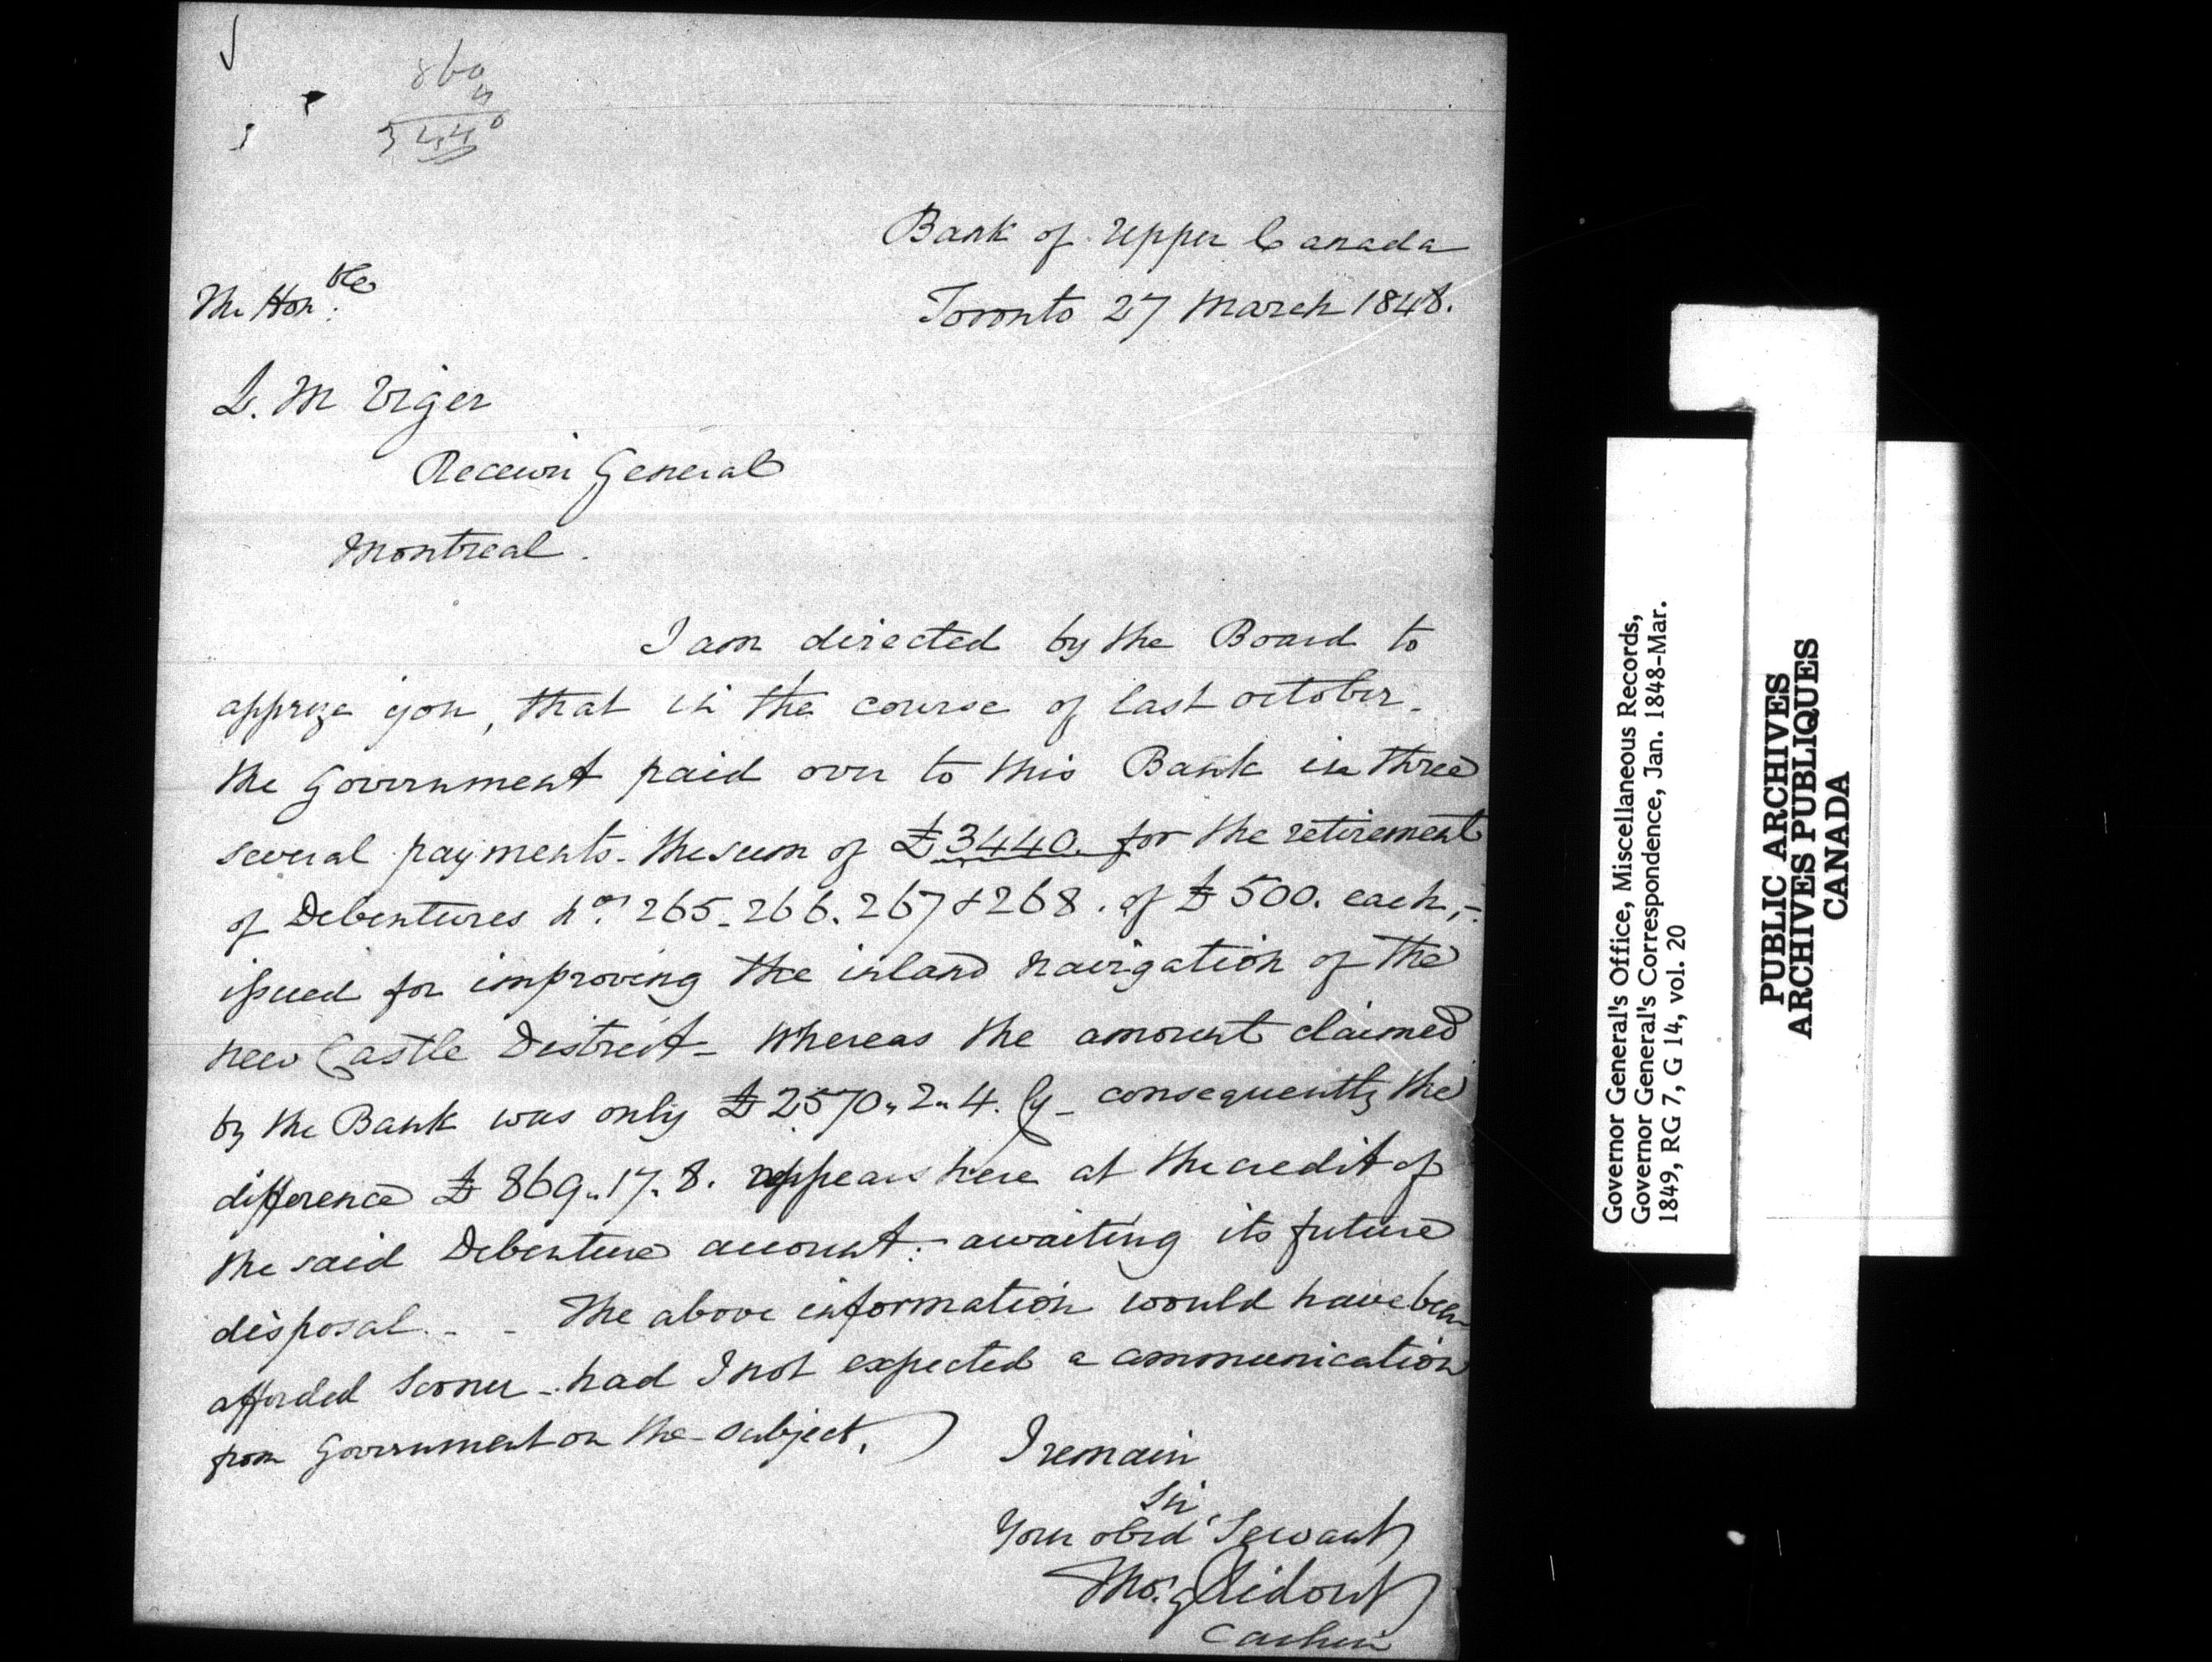 860
3440
Bank of Upper Canada
Toronto 27 March 1848.
The Hon:ble
L. M Viger
Receiver General
Montreal.
I am directed by the Board to
apprize you, that in the course of last october.
the Government paid over to this Bank in three
several payments. the sum of £3440. for the retirement
of Debentures nos. 265-266.267 & 268. of £500. each,-
issued for improving the inland navigation of the
New Castle District- Whereas the amount claimed
by the Bank was only £2570,,2,,4. Cy- consequently the
difference £869,,17,,8. appears here at the credit of
the said Debenture account:- awaiting its future
disposal. - - The above information would have been
afforded sooner - had I not expected a communication
from Government on the subject.
I remain
Sir
Your obed Servant
Thos. G Ridout
Cashier
Governor General's Office, Miscellaneous Records,
Governor General's Correspondence, Jan. 1848-Mar.
1849, RG 7, G 14, vol. 20
PUBLIC ARCHIVES
ARCHIVES PUBLIQUES
CANADA